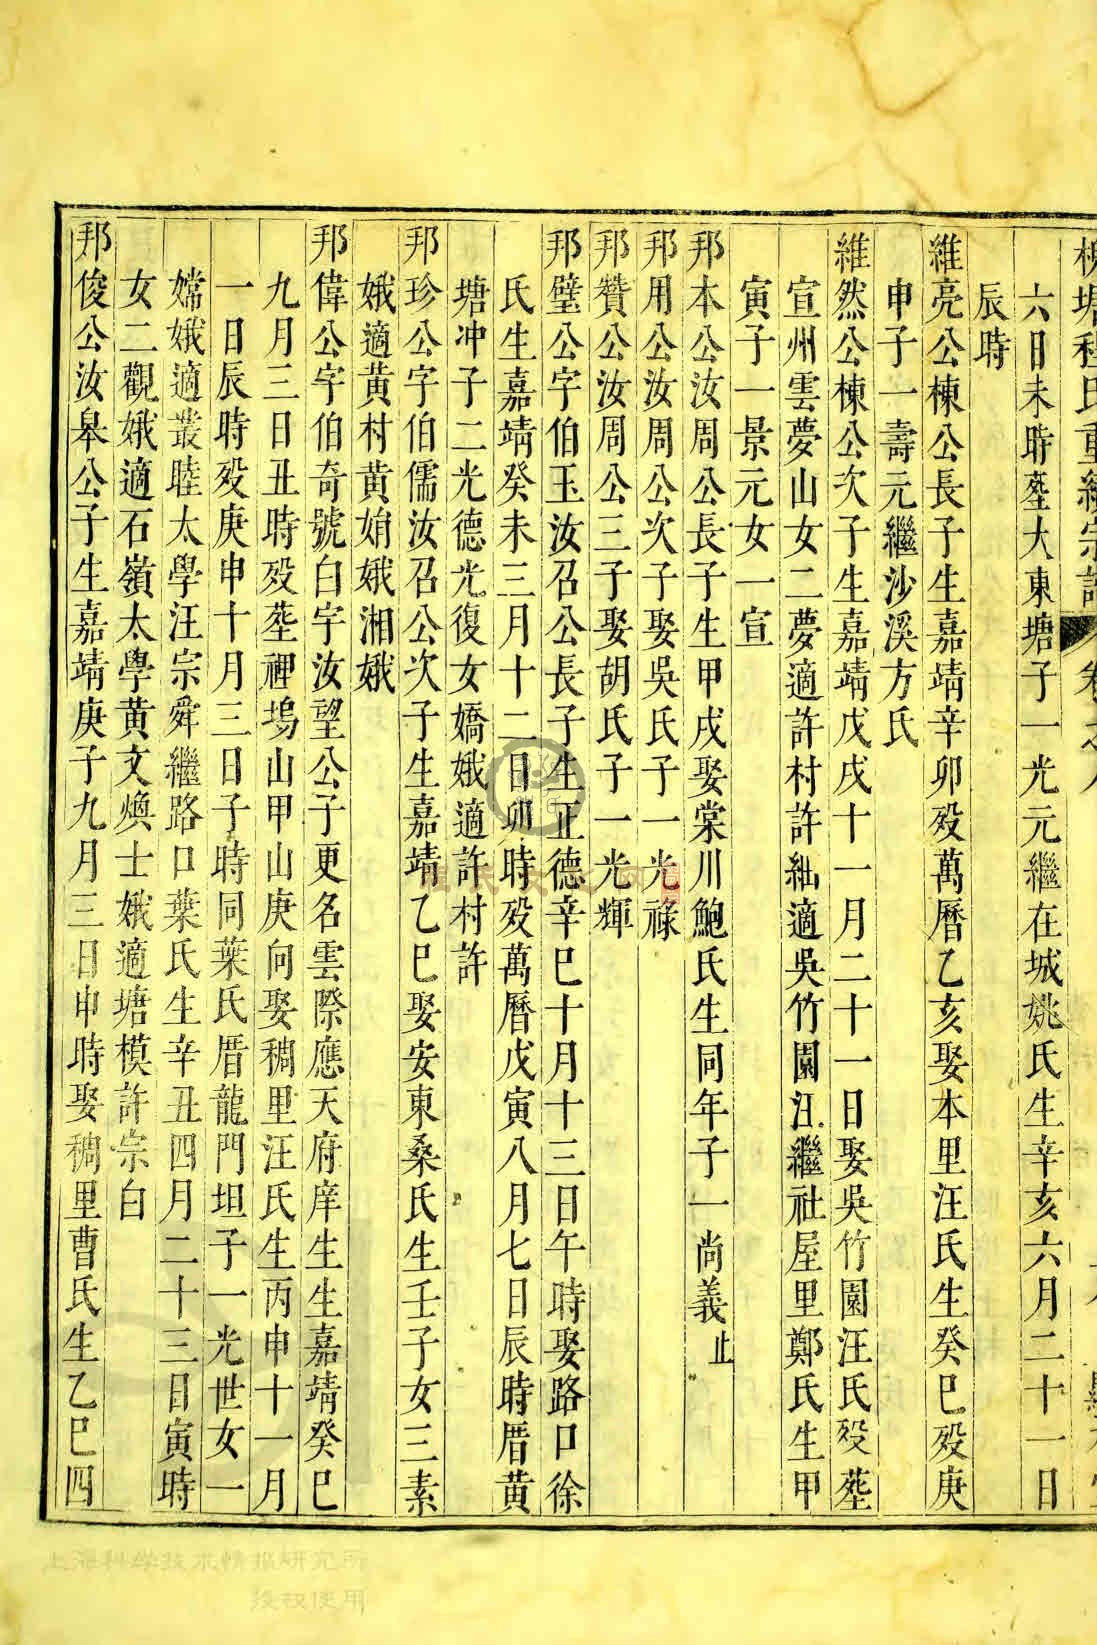 槐塘程氏重續宗譜 卷之八
六日未時葬大東塘子一光元繼在城姚氏生辛亥六月二十一日
辰時
維亮公棟公長子生嘉靖辛卯歿萬曆乙亥娶本里汪氏生癸巳歿庚
申子一壽元繼沙溪方氏
維然公棟公次子生嘉靖戊戌十一月二十一日娶吳竹園汪氏歿葬
宣州雲夢山女二夢適許村許絀適吳竹園汪繼社屋里鄭氏生甲
寅子一景元女一宣
邦本公汝周公長子生甲戌娶棠川鮑氏生同年子一尚義止
邦用公汝周公次子娶吳氏子一光祿
邦贊公汝周公三子娶胡氏子一光輝
邦璧公字伯玉汝召公長子生正德辛巳十月十三日午時娶路口徐
氏生嘉靖癸未三月十二日卯時歿萬曆戊寅八月七日辰時厝黃
塘沖子二光德光復女嬌娥適許村許
邦珍公字伯儒汝召公次子生嘉靖乙巳娶安東桑氏生壬子女三素
娥適黃村黃娋娥湘娥
邦偉公字伯奇號白宇汝望公子更名雲際應天府庠生生嘉靖癸巳
九月三日丑時歿葬裡塢山甲山庚向娶稠里汪氏生丙申十一月
一日辰時歿庚申十月三日子時同葉氏厝龍門坦子一光世女一
嫦娥適叢睦太學汪宗舜繼路口葉氏生辛丑四月二十三日寅時
女二觀娥適石嶺太學黃文煥士娥適塘模許宗白
邦俊公汝皋公子生嘉靖庚子九月三日申時娶稠里曹氏生乙巳四
上海科学技术情报研究所
授权使用